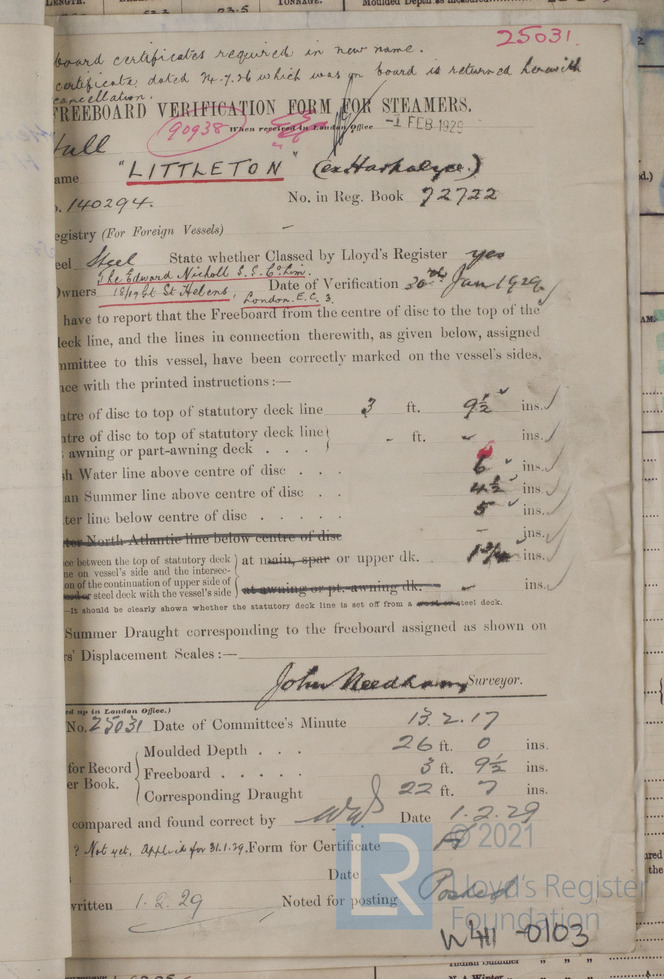 LENGTH. TONNAGE. Moulded Depth as measured
23.5
25031.
board certificates required in new name.
certificate dated 24.7.26 which was on board is returned herewith
cancellation.
FREEBOARD VERIFICATION FORM FOR STEAMERS.
90938 When received in London Office -1 FEB 1929
Hull
ame "LITTLETON" (ex Haskalyne.)
o. 140294. No. in Reg. Book 72722
egistry (For Foreign Vessels) -
eel Steel State whether Classed by Lloyd's Register yes
The Edward Nicholl S.S. Co Lim.
Owners 18/19 Gt St Helens, Date of Verification 30th Jan 1929
London. E.C. 3.
have to report that the Freeboard from the centre of disc to the top of the
deck line, and the lines in connection therewith, as given below, assigned
mmittee to this vessel, have been correctly marked on the vessel's sides,
nce with the printed instructions:—
ntre of disc to top of statutory deck line 3 ft. 9½ ins.
ntre of disc to top of statutory deck line
awning or part-awning deck . . . - ft. - ins.
sh Water line above centre of disc . . . 6 ins.
an Summer line above centre of disc . . 4½ ins.
ter line below centre of disc . . . . . 5 ins.
ter North Atlantic line below centre of disc - ins.
ce between the top of statutory deck
ne on vessel's side and the intersec- at main, spar or upper dk. 1¾ ins.
on of the continuation of upper side of
wood or steel deck with the vessel's side at awning or pt.-awning dk. - ins.
—It should be clearly shown whether the statutory deck line is set off from a wood or steel deck.
Summer Draught corresponding to the freeboard assigned as shown on
rs' Displacement Scales:—
John Needham, Surveyor.
ed up in London Office.)
No. 25031 Date of Committee's Minute 13.2.17
Moulded Depth . . . 26 ft. 0 ins.
for Record Freeboard . . . . . 3 ft. 9½ ins.
er Book. Corresponding Draught 22 ft. 7 ins.
compared and found correct by Date 1.2.29
? Not yet. Applied for 31.1.29. Form for Certificate A
Date
written 1.2.29 Noted for posting Posted
LR © 2021
Lloyd's Register
Foundation
W411-0103
Indian Summer " " "
N.A. Winter